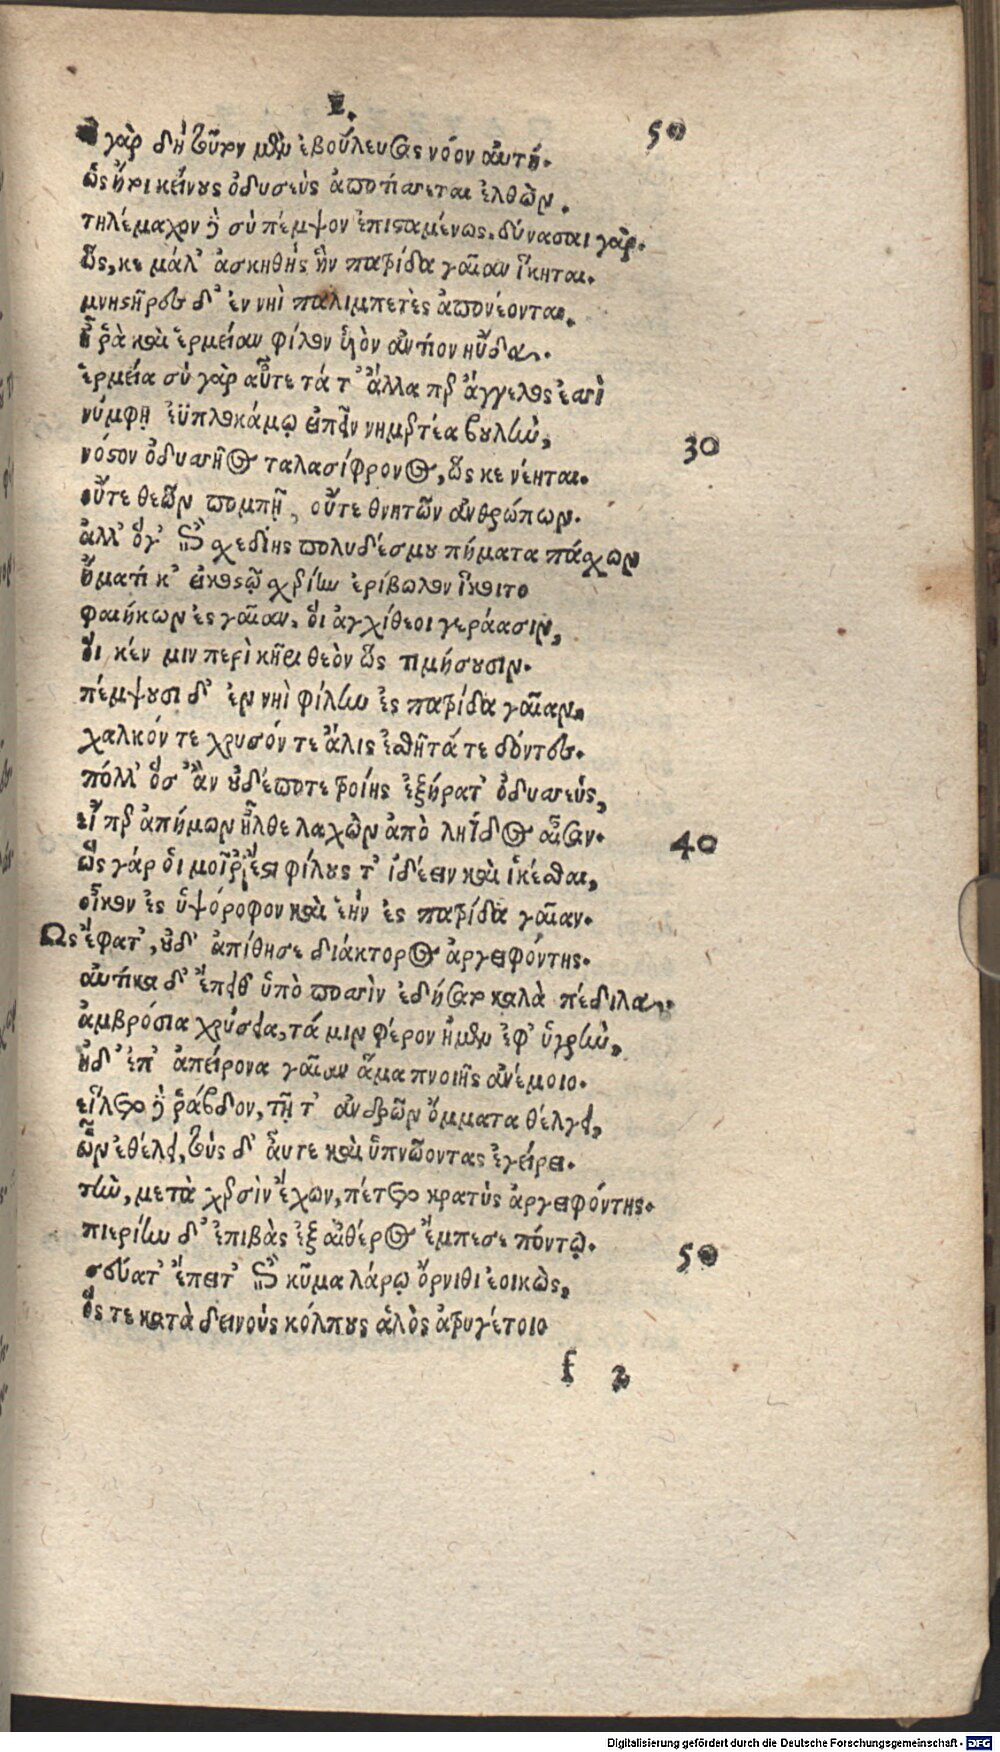 Ε. 50
Οὐ γὰρ δὴ τοῦτον μὲν ἐβούλευσας νόον αὐτή.
ὡς ἤτοι κείνους ὀδυσεὺς ἀποτίσεται ἐλθών.
τηλέμαχον δὲ σὺ πέμψον ἐπισταμένως. δύνασαι γὰρ.
ὥς, κε μάλ' ἀσκηθὴς ἣν πατρίδα γαῖαν ἵκηται.
μνηστῆρες δ' ἐν νηῒ παλιμπετὲς ἀπονέονται.
ἦ ῥὰ καὶ ἑρμείαν φίλον υἱὸν ἀντίον ηὔδα.
ἑρμεία σὺ γὰρ αὖτε τά τ' ἄλλα περ ἄγγελος ἐσσὶ
νύμφῃ ἐϋπλοκάμῳ εἰπεῖν νημερτέα βουλὴν, 30
νόστον ὀδυσσῆος ταλασίφρονος, ὥς κε νέηται.
οὔτε θεῶν πομπῇ, οὔτε θνητῶν ἀνθρώπων.
ἀλλ' ὅγ' ἐπὶ σχεδίης πολυδέσμου πήματα πάσχων
ἤματί κ' εἰκοστῷ σχερίην ἐρίβωλον ἵκοιτο
φαιήκων ἐς γαῖαν. οἳ ἀγχίθεοι γεγάασιν,
οἵ κέν μιν περὶ κῆρι θεὸν ὣς τιμήσουσιν.
πέμψουσι δ' ἐν νηῒ φίλην ἐς πατρίδα γαῖαν.
χαλκόν τε χρυσόν τε ἅλις ἐσθῆτά τε δόντες.
πόλλ' ὅσ' ἂν οὐδέποτε τροίης ἐξήρατ' ὀδυσσεύς,
εἴ περ ἀπήμων ἦλθε λαχὼν ἀπὸ ληΐδος αἶσαν. 40
ὣς γάρ οἱ μοῖρ' ἐστὶ φίλους τ' ἰδέειν καὶ ἱκέσθαι,
οἶκον ἐς ὑψόροφον καὶ ἑὴν ἐς πατρίδα γαῖαν.
Ως ἔφατ', οὐδ' ἀπίθησε διάκτορος ἀργειφόντης.
αὐτίκα δ' ἔπειθ' ὑπὸ ποσσὶν ἐδήσατο καλὰ πέδιλα.
ἀμβρόσια χρύσεια, τά μιν φέρον ἠμὲν ἐφ' ὑγρὴν,
ἠδ' ἐπ' ἀπείρονα γαῖαν ἅμα πνοιῇς ἀνέμοιο.
εἵλετο δὲ ῥάβδον, τῇ τ' ἀνδρῶν ὄμματα θέλγει,
ὧν ἐθέλει, τοὺς δ' αὖτε καὶ ὑπνώοντας ἐγείρει.
τὴν, μετὰ χερσὶν ἔχων, πέτετο κρατὺς ἀργειφόντης.
πιερίην δ' ἐπιβὰς ἐξ αἰθέρος ἔμπεσε πόντῳ. 50
σεύατ' ἔπειτ' ἐπὶ κῦμα λάρῳ ὄρνιθι ἐοικὼς,
ὅς τε κατὰ δεινοὺς κόλπους ἁλὸς ἀτρυγέτοιο
f 2
Digitalisierung gefördert durch die Deutsche Forschungsgemeinschaft - DFG